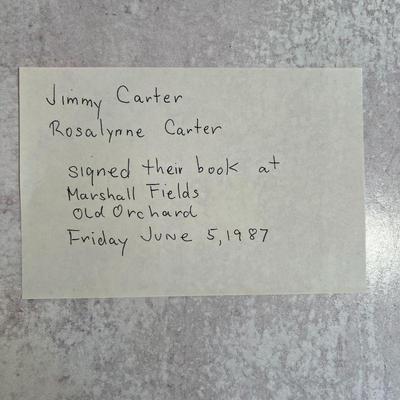 Jimmy Carter
Rosalynne Carter
signed their book at
Marshall Fields
Old Orchard
Friday June 5, 1987